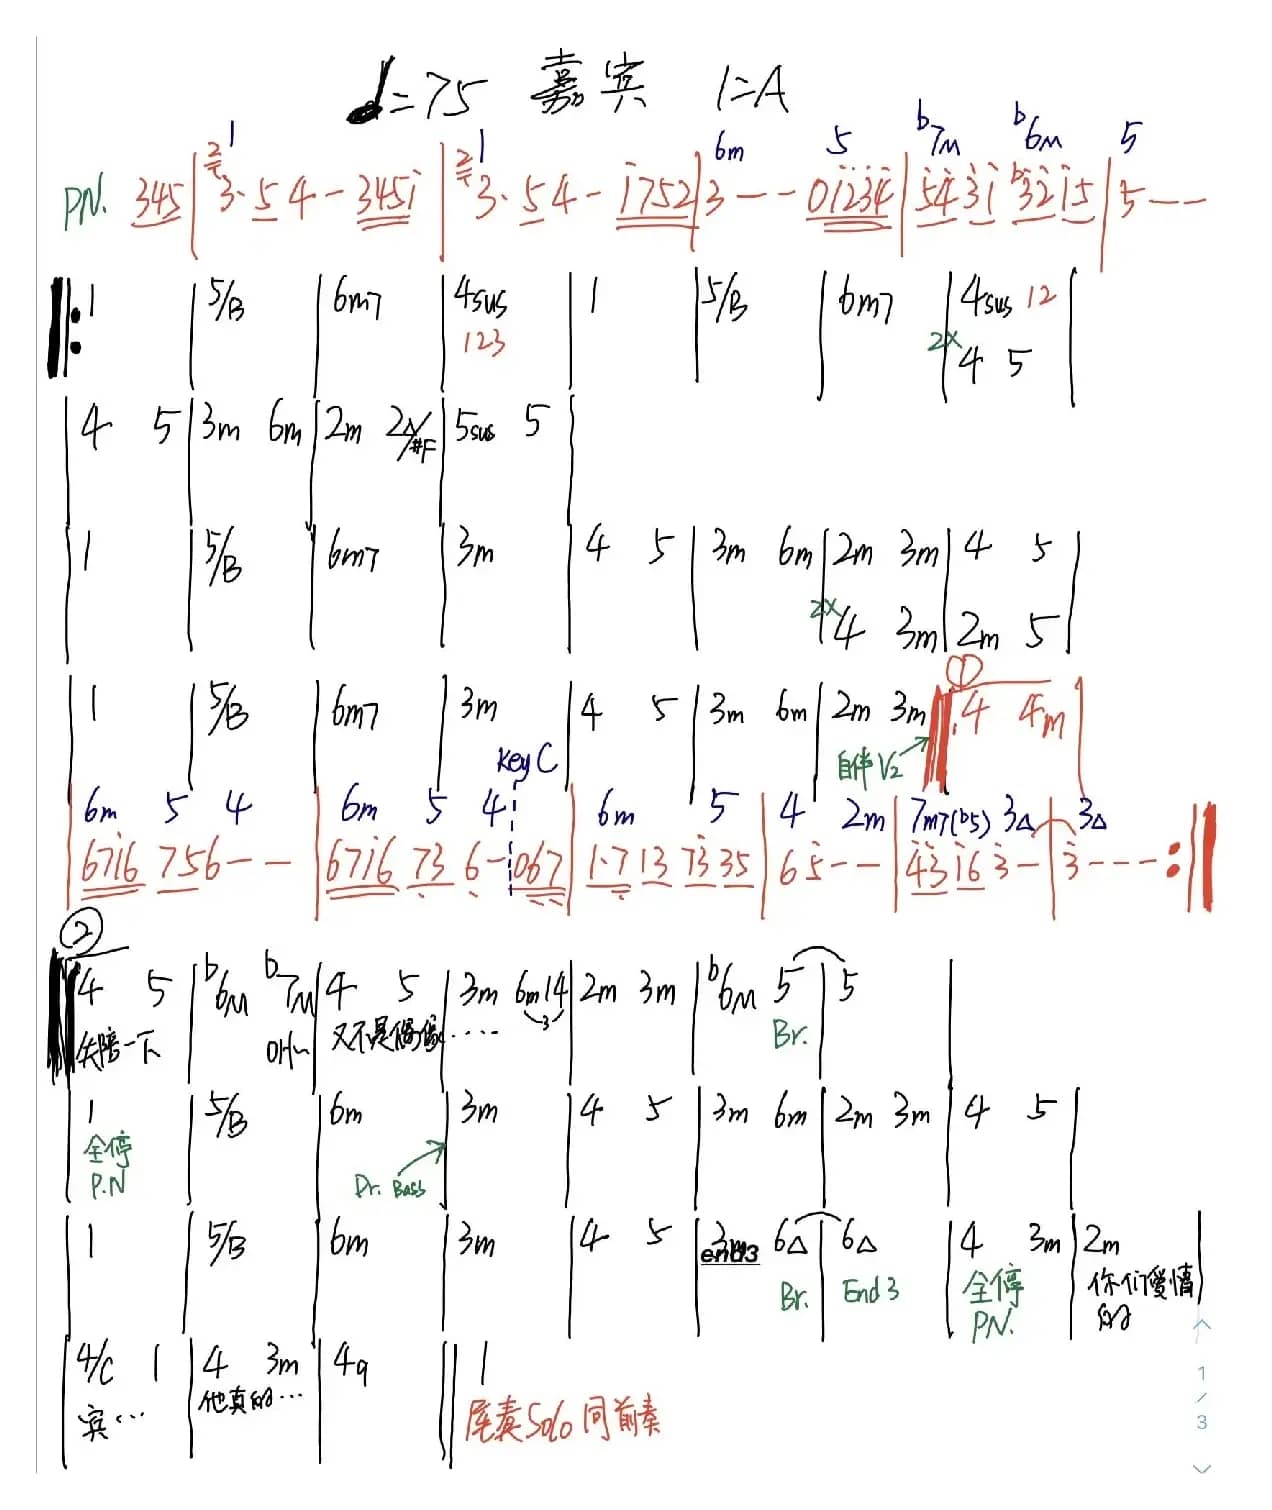 ♩=75 嘉宾 1=A
1 1 6m 5 b7M b6M 5
PN. 345 | 2 3· 5 4 - 345i | 2 3· 5 4 - i752 | 3 - - - 0i234 | 5431 b3215 | 5 - - -
‖: 1 | 5/B | 6m7 | 4sus | 1 | 5/B | 6m7 | 4sus 12 |
123 2X 4 5
| 4 5 | 3m 6m | 2m 2△/#F | 5sus 5 |
| 1 | 5/B | 6m7 | 3m | 4 5 | 3m 6m | 2m 3m | 4 5 |
2X 4 3m | 2m 5 |
①
| 1 | 5/B | 6m7 | 3m | 4 5 | 3m 6m | 2m 3m | 4 4m |
Key C 自伴 V2
6m 5 4 6m 5 4 6m 5 4 2m 7m7(b5) 3△ 3△
| 6716 756 - - | 6716 73 6 - 067 | 1·7 13 73 35 | 6 5 - - | 43 16 3 - | 3 - - - :‖
②
| 4 5 | b6M b7M | 4 5 | 3m 6m 14 | 2m 3m | b6M 5 | 5 |
3
失陪一下 OH~ 又不是偶像····· Br.
| 1 | 5/B | 6m | 3m | 4 5 | 3m 6m | 2m 3m | 4 5 |
全停
P.N Dr. Bass
| 1 | 5/B | 6m | 3m | 4 5 | 3m 6△ | 6△ | 4 3m | 2m |
end3 Br. End 3 全停 你们爱情
PN. 的
| 4/C 1 | 4 3m | 4 9 ‖ 1
宾··· 他真的··· 尾奏Solo同前奏
1
/
3